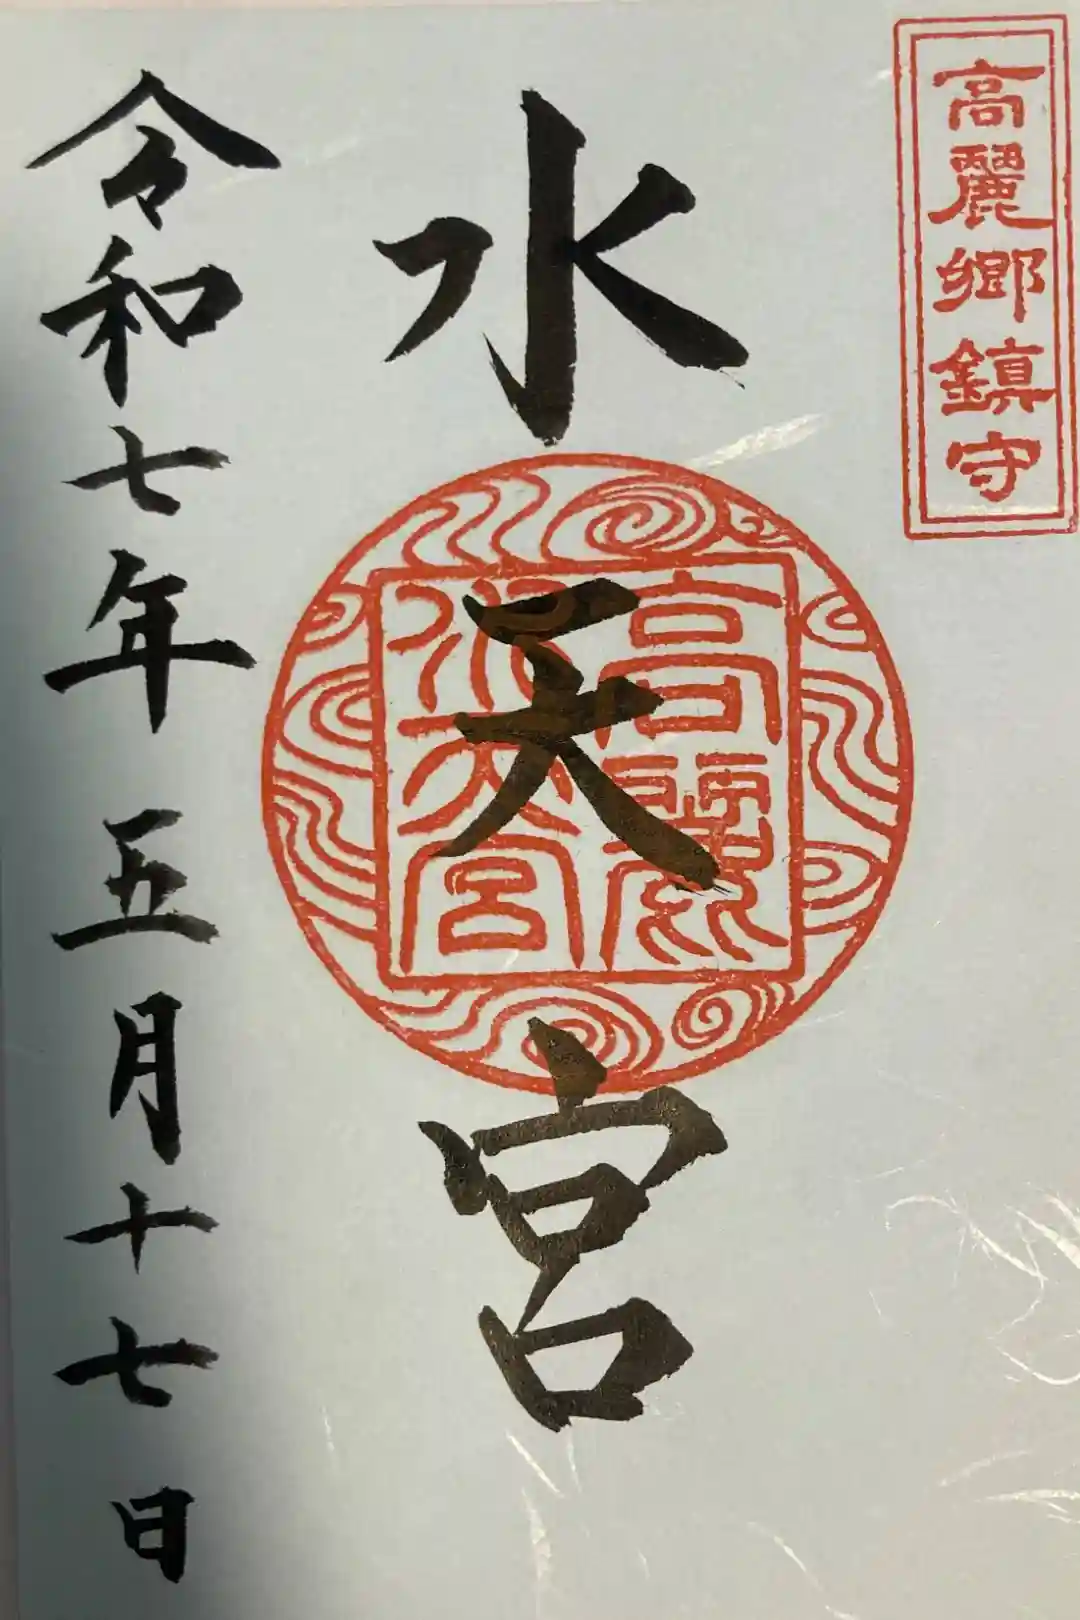 高麗郷鎮守
水天宮
高麗
水天宮
令和七年五月十七日